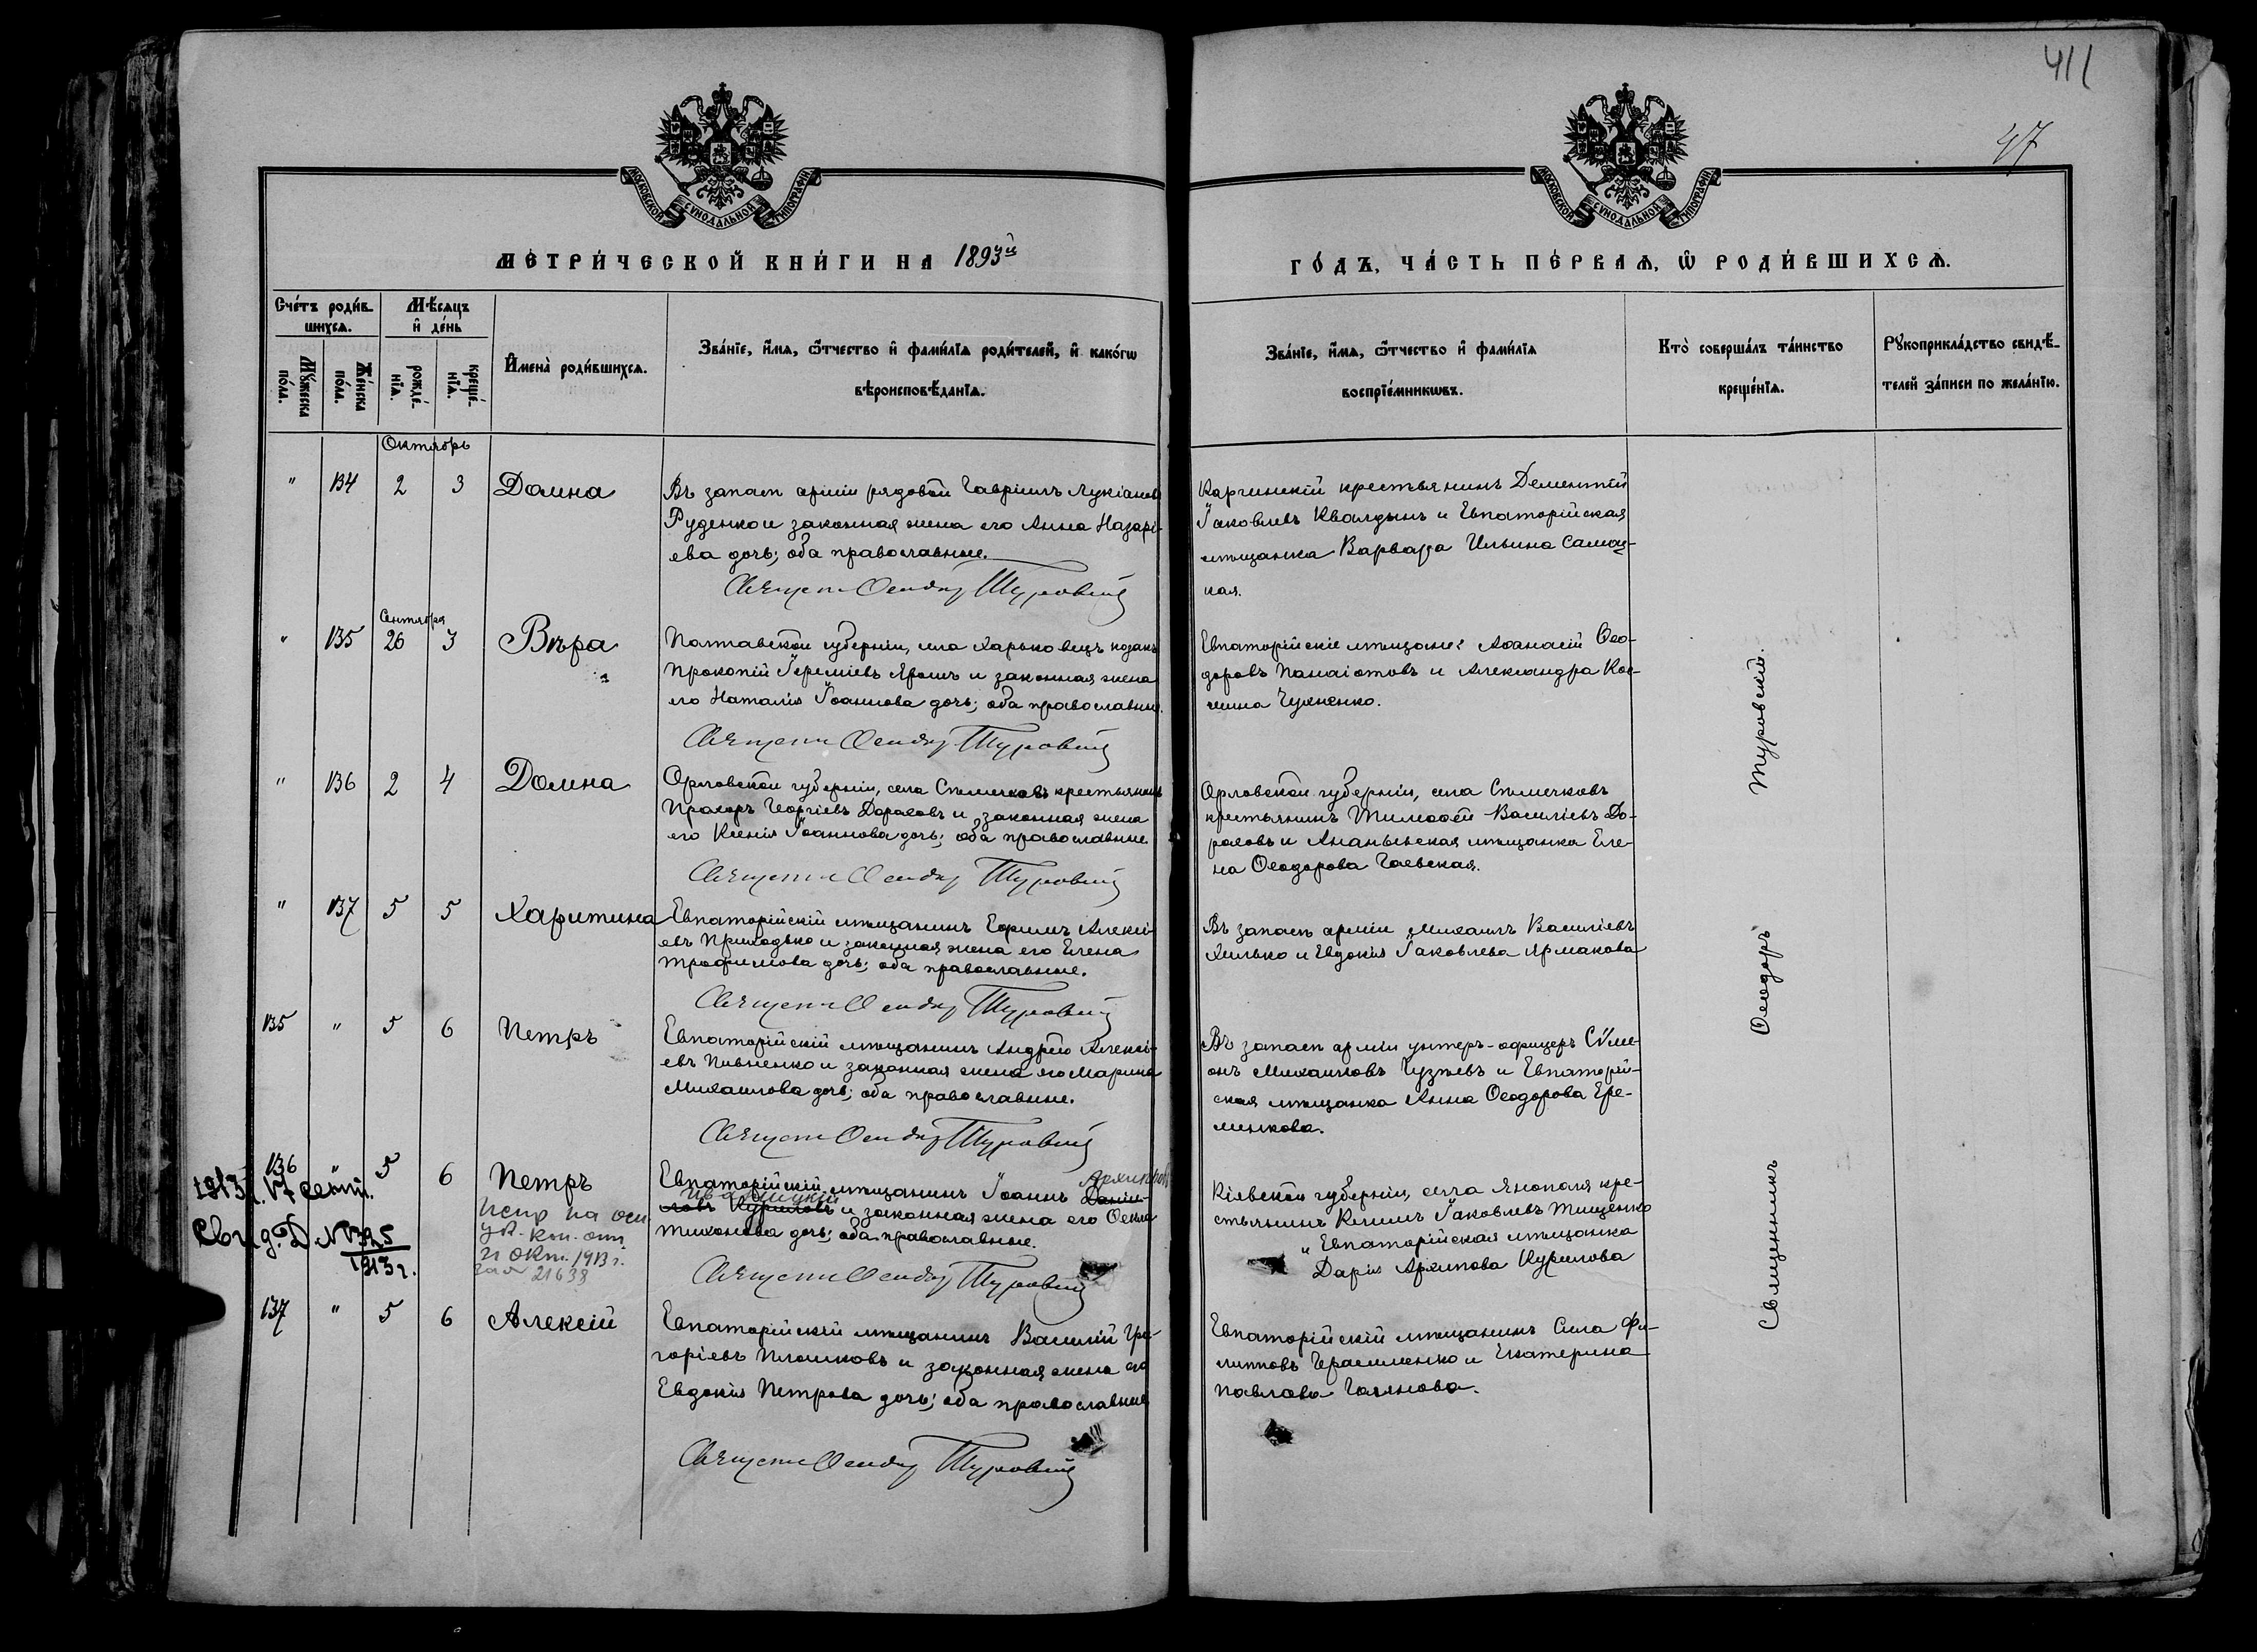 411
47
МОСКОВСКОЙ СѴНОДАЛЬНОЙ ТИПОГРАФІИ
МОСКОВСКОЙ СѴНОДАЛЬНОЙ ТИПОГРАФІИ
МЕТРИ́ЧЕСКОЙ КНИ́ГИ НА 1893й
ГО́ДЪ, ЧА́СТЬ ПЕ́РВАѦ, Ѡ РОДИ́ВШИХСѦ.
Сче́тъ роди́в-
шихсѧ.
Мѣ́сѧцъ
и де́нь
Мꙋжеска по́ла.
Же́нска по́ла.
рожде́-нїѧ.
креще́-нїѧ.
И҆мена̀ роди́вшихсѧ.
Зва́нїе, и҆́мѧ, ѻ҆́тчество и҆ фами́лїѧ роди́телей, и҆ како́гѡ
вѣроисповѣ́данїѧ.
Зва́нїе, и҆́мѧ, ѻ҆́тчество и҆ фами́лїѧ
воспрїе́мникѡвъ.
Кто̀ соверша́лъ та́инство
креще́нїѧ.
Рꙋкоприкла́дство свидѣ́-
телей за́писи по жела́нїю.
Октябрь
" 134 2 3 Домна
Въ запасѣ арміи рядовой Гавріилъ Лукіановъ
Руденко и законная жена его Анна Назарі-
ева дочь; оба православные.
Священ Ѳеодор Туровскій
Каргинскій крестьянинъ Дементій
Іаковлевъ Квалдынъ и Евпаторійская
мѣщанка Варвара Ильина Самоц-
кая.
Сентября
" 135 26 3 Вѣра
Полтавской губерніи, села Харьковецъ козакъ
Прокопій Іереміевъ Ярошъ и законная жена
его Наталія Іоаннова дочь; оба православные.
Священ Ѳеодор Туровскій
Евпаторійскіе мѣщане: Аѳанасій Ѳео-
доровъ Панаіотовъ и Александра Кос-
мина Чухненко.
" 136 2 4 Домна
Орловской губерніи, села крестьянинъ
Прохоръ Георгіевъ Дораховъ и законная жена
его Ксенія Іоаннова дочь; оба православные.
Священ Ѳеодор Туровскій
Орловской губерніи, села
крестьянинъ Тимоѳей Василіевъ До-
раховъ и Ананьевская мѣщанка Еле-
на Ѳеодорова Гаевская.
" 137 5 5 Харитина
Евпаторійскій мѣщанинъ Ефимъ Алексі-
евъ Приходько и законная жена его Елена
Трофимова дочь; оба православные.
Священ Ѳеодор Туровскій
Въ запасѣ арміи Михаилъ Василіевъ
Хилько и Евдокія Іаковлева Ярмакова
135 " 5 6 Петръ
Евпаторійскій мѣщанинъ Андрей Алексі-
евъ Пивненко и законная жена его Марина
Михаилова дочь; оба православные.
Священ Ѳеодор Туровскій
Въ запасѣ арміи унтеръ-офицеръ Сѵме-
онъ Михаиловъ Гузѣевъ и Евпаторій-
ская мѣщанка Анна Ѳеодорова Ере-
менкова.
136 " 5 6 Петръ
1913 г. 17 сент.
Свид. Д. № 325
1913 г.
Испр на осн
ук. кон. отъ
21 окт. 1913 г.
за № 21638
Евпаторійскій мѣщанинъ Іоаннъ Даніи- Архиповъ
ловъ Куриловъ и законная жена его Ѳекла
Тихонова дочь; оба православные.
Священ Ѳеодор Туровскій
Кіевской губерніи, села Янополя кре-
стьянинъ Климъ Іаковлевъ Тищенко
и Евпаторійская мѣщанка
Дарія Архипова Курилова
137 " 5 6 Алексій
Евпаторійскій мѣщанинъ Василій Гри-
горіевъ Плошковъ и законная жена его
Евдокія Петрова дочь; оба православные
Священ Ѳеодор Туровскій
Евпаторійскій мѣщанинъ Сила Фи-
липповъ Герасименко и Екатерина
Павлова Гаянова.
Священникъ Ѳеодоръ Туровскій.